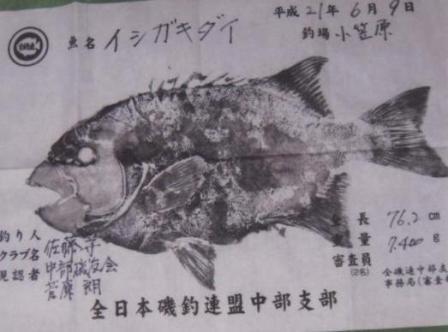 平成21年6月9日
魚名 イシガキダイ
釣場 小笠原
長 76.2 cm
量 7.400 g
審査員
(2名)
釣り人 佐藤
クラブ名 中部磯友会
見認者 菅原 朗
全磯連中部支
事務局(審査
全日本磯釣連盟中部支部